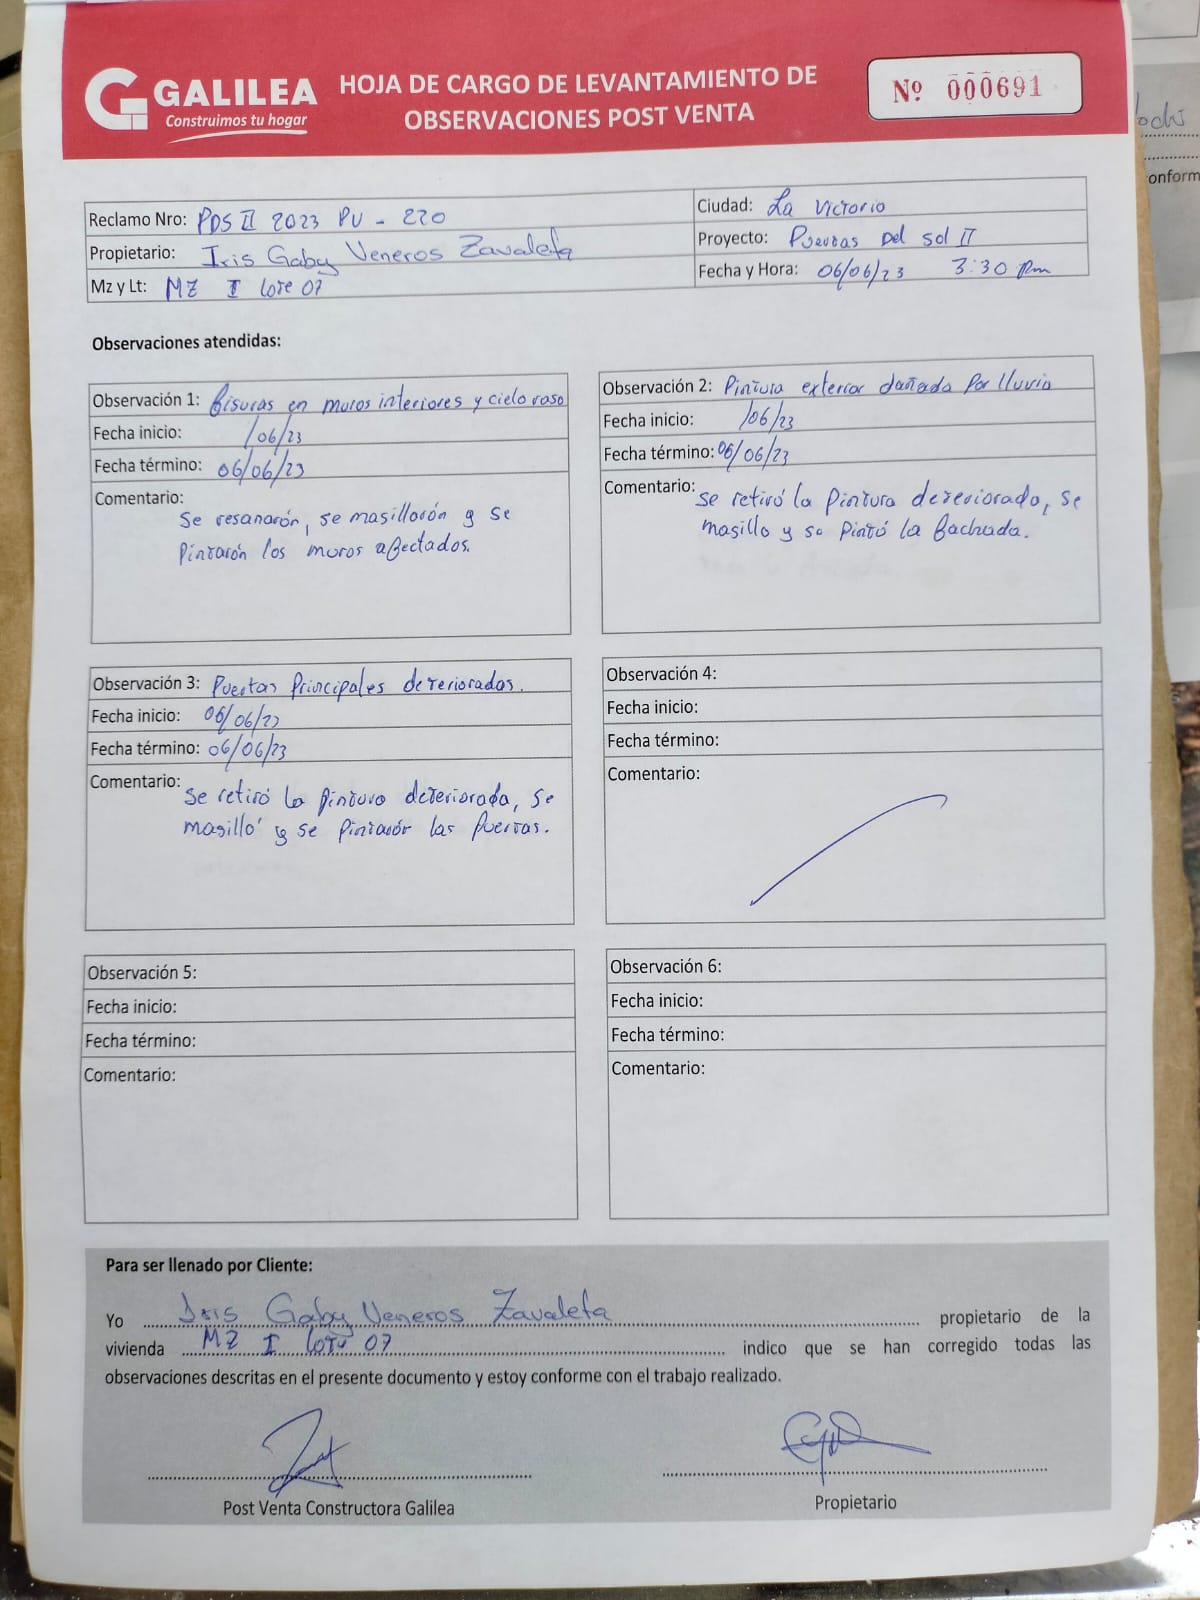 GALILEA
Construimos tu hogar
HOJA DE CARGO DE LEVANTAMIENTO DE
OBSERVACIONES POST VENTA
Nº 000691
Reclamo Nro: PDS II 2023 PV - 220
Propietario: Iris Gaby Veneros Zavaleta
Mz y Lt: MZ I lote 07
Ciudad: La Victoria
Proyecto: Puertas Del Sol II
Fecha y Hora: 06/06/23 3:30 pm
Observaciones atendidas:
Observación 1: Fisuras en muros interiores y cielo raso
Fecha inicio: /06/23
Fecha término: 06/06/23
Comentario:
Se resanarón, se masillarón y se
Pintarón los muros afectados.
Observación 2: Pintura exterior dañada Por lluvia
Fecha inicio: /06/23
Fecha término: 06/06/23
Comentario:
Se retiró la Pintura deteriorada, se
masillo y se Pintó la fachada.
Observación 3: Puertas Principales deterioradas.
Fecha inicio: 06/06/23
Fecha término: 06/06/23
Comentario:
Se retiró la pintura deteriorada, se
masilló y se pintarón las Puertas.
Observación 4:
Fecha inicio:
Fecha término:
Comentario:
Observación 5:
Fecha inicio:
Fecha término:
Comentario:
Observación 6:
Fecha inicio:
Fecha término:
Comentario:
Para ser llenado por Cliente:
Yo Iris Gaby Veneros Zavaleta propietario de la
vivienda MZ I lote 07 indico que se han corregido todas las
observaciones descritas en el presente documento y estoy conforme con el trabajo realizado.
Post Venta Constructora Galilea
Propietario